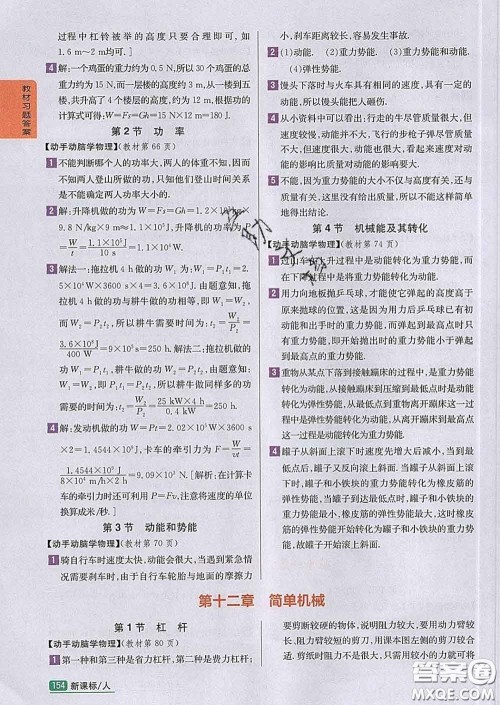 过程中杠铃被举的高度只要合理即可,如
1.6 m～2 m均可.]
4 解:一个鸡蛋的重力约为0.5 N,所以30个鸡蛋的总
重力约为15 N,而一层楼的高度约为3 m,从一楼到五
楼,共升高了4个楼层的高度,约为12 m,根据功的
计算式可得:W=Fs=Gh=15 N×12 m=180 J.
第2节 功 率
【动手动脑学物理】(教材第66页)
1 不能判断哪个人的功率大,两人做功相同,但因不
知两人登山所做的功,只知他们登山时间关系
是不能确定两人功率大小的.
2 解:升降机做的功W=Fs=Gh=1.2×10³kg×
9.8 N/kg×9 m≈1.1×10⁵ J,升降机的功率为P=
W/t=1.1×10⁵J/10 s=1.1×10⁴ W.
3 解法一:拖拉机4 h做的功W₁为:W₁=P₁t₁,耕牛
做的功W₂为:W₂=P₂t₂,由题意知,拖
拉机4 h做的功和耕牛做的功相等,即W₁=
W₂=P₂t₂,所以耕牛需要时间为:t₂=W₂/P₂=
3.6×10⁸J/400 W=9×10⁵s=250 h. 解法二:拖拉机做的
功W₁=P₁t₁,耕牛做的功W₂=P₂t₂,由题意知:
W₁=W₂,即P₁t₁=P₂t₂,所以耕牛做同样多的功
需要的时间为:t₂=P₁t₁/P₂=25 kW×4 h/0.4 kW=250 h.
4 解:发动机做的功W=Pt=2.02×10⁵W×3 600 s
×2=1.4544×10⁹J,卡车的牵引力为F=W/s=
1.4544×10⁹ J/1.6×10⁵ m=9.09×10³ N.[解析:在计算卡
车的牵引力时还可利用P=Fv,注意将速度的单位
换算成米/秒.]
第3节 动能和势能
【动手动脑学物理】(教材第70页)
1 骑自行车时速度太快,动能会很大,当遇到紧急情
况需要刹车时,由于自行车轮胎与地面的摩擦力
小,刹车距离较大,容易发生事故.
2 (1)动能. (2)重力势能. (3)重力势能和动能.
(4)弹性势能.
3 馒头下落时与火车具有相同的速度,具有很大的动
能,所以馒头能把人砸伤.
4 从图中可以看出:行走的牛尽管质量很大,但其
速度较小,动能并不大,飞行的步枪子弹尽管质量不
大,但其速度很大,其动能比牛大很多,由此可以得
出,速度对物体动能的影响要比质量对动能的影响要大.
5 不能.因为重力势能的大小不仅与高度有关,还与
质量有关,所以重力势能和高度的关系不能这样简
单地得出结论.
第4节 机械能及其转化
【动手动脑学物理】(教材第74页)
1 过山车在上升过程中是动能转化为重力势能,而
在下降过程中是将重力势能转化为动能.
2 用力向地板抛乒乓球,才能使它弹起的高度高于
原来抛球的位置,这是因为用力后乒乓球已有初
动能和出手时的重力势能,而到最高点时,动能几
乎全部转化为重力势能,所以弹起后最高点的重
力势能大于出手时的重力势能,因而高于弹
起到最高点的重力势能.
3 重物从某点下落到接触蹦床的过程中,是重力势能
转化为动能,从接触蹦床到压缩到最低点时是动能
转化为弹性势能,从最低点到重物离开蹦床时弹
性势能转化为动能,从离开蹦床到蹦到最高点这
一过程动能转化为重力势能.
4 罐子从斜面上滚下时速度先增大后减小,当到
最低点时,罐子又向斜面上滚.罐子从斜面上滚
下时,罐子和小铁块的重力势能转化为橡皮筋的
弹性势能,橡皮筋的弹性势能越来越大,当到
最低点时,橡皮筋的弹性势能最大,这时橡皮筋的
弹性势能开始转化为罐子和小铁块的重力势
能,故罐子开始滚上斜面.
教材习题答案
第十二章 简单机械
第1节 杠 杆
【动手动脑学物理】(教材第80页)
1 第一种和第三种是省力杠杆,第二种是费力杠杆;
要剪断较硬的物体,说明阻力较大,要用动力臂
大、阻力臂短的剪刀,用课本图左侧的剪刀较合
154 新课标/人
答案圈
MXQE.COM